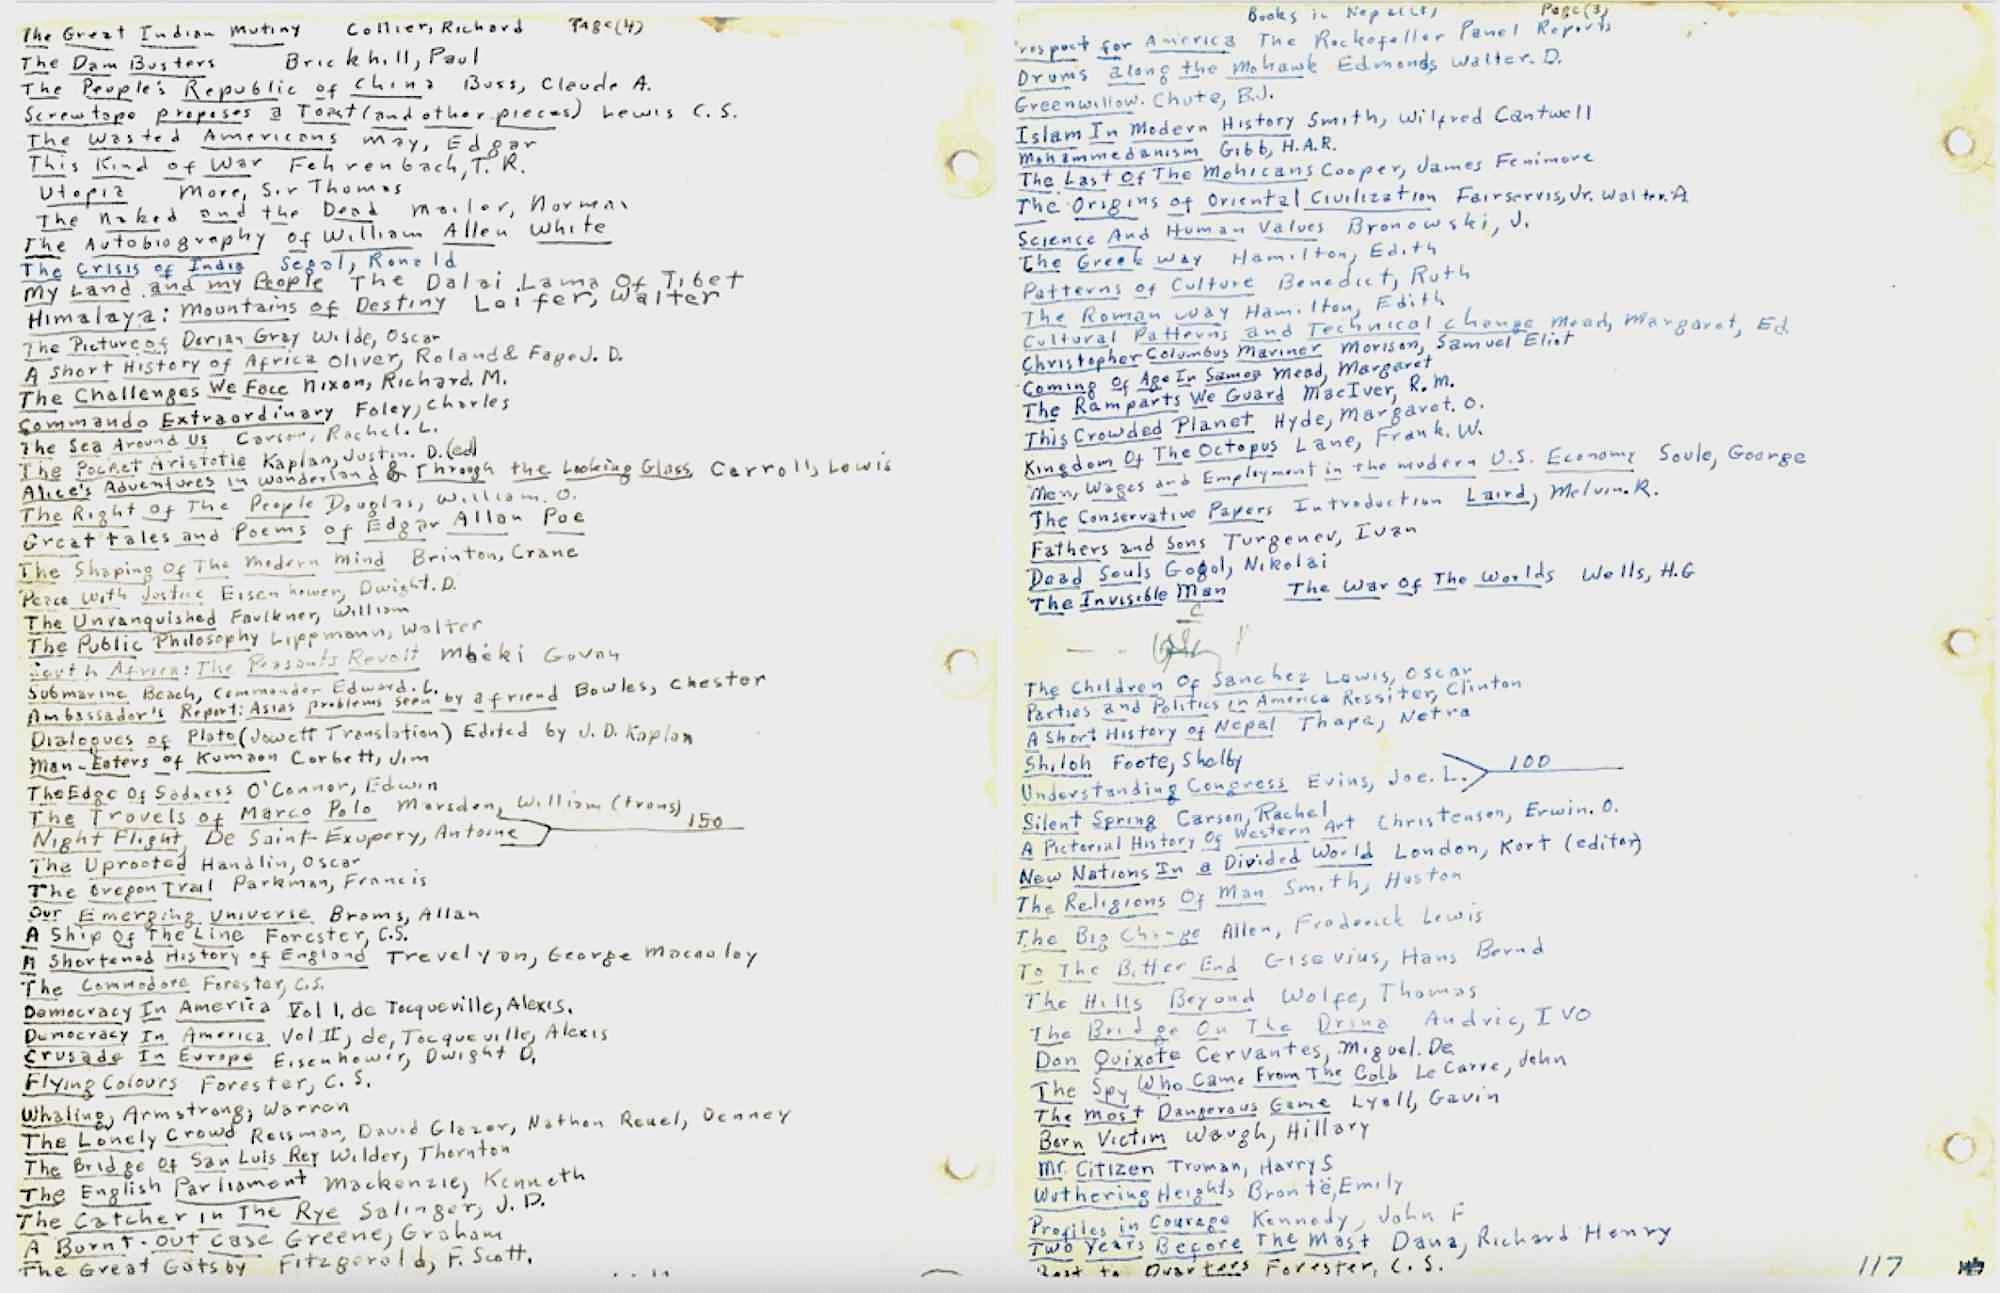 The Great Indian Mutiny Collier, Richard Page(4)
The Dam Busters Brickhill, Paul
The People's Republic of China Buss, Claude A.
Screwtape proposes a Toast (and other pieces) Lewis C. S.
The Wasted Americans May, Edgar
This Kind of War Fehrenbach, T. R.
Utopia More, Sir Thomas
The Naked and the Dead Mailer, Norman
The Autobiography of William Allen White
The Crisis of India Segal, Ronald
My Land and my People The Dalai Lama Of Tibet
Himalaya: Mountains of Destiny Leifer, Walter
The Picture of Dorian Gray Wilde, Oscar
A Short History of Africa Oliver, Roland & Fage J. D.
The Challenges We Face Nixon, Richard. M.
Commando Extraordinary Foley, Charles
The Sea Around Us Carson, Rachel. L.
The Pocket Aristotle Kaplan, Justin. D. (ed)
Alice's Adventures in Wonderland & Through the Looking Glass, Carroll, Lewis
The Right Of The People Douglas, William. O.
Great tales and Poems of Edgar Allan Poe
The Shaping Of The Modern Mind Brinton, Crane
Peace With Justice Eisenhower, Dwight. D.
The Unvanquished Faulkner, William
The Public Philosophy Lippmann, Walter
South Africa: The Peasants Revolt Mbeki Govan
Submarine Beach, Commander Edward. L.
Ambassador's Report: Asias problems seen by a friend Bowles, Chester
Dialogues of Plato (Jowett Translation) Edited by J. D. Kaplan
Man-Eaters of Kumaon Corbett, Jim
The Edge Of Sadness O'Connor, Edwin
The Travels of Marco Polo Marsden, William (trans)
Night Flight, De Saint-Exupery, Antoine 150
The Uprooted Handlin, Oscar
The Oregon Trail Parkman, Francis
Our Emerging Universe Broms, Allan
A Ship Of The Line Forester, C.S.
A Shortened History of England Trevelyan, George Macaulay
The Commodore Forester, C.S.
Democracy In America Vol I, de Tocqueville, Alexis.
Democracy In America Vol II, de, Tocqueville, Alexis
Crusade In Europe Eisenhower, Dwight D.
Flying Colours Forester, C. S.
Whaling, Armstrong, Warren
The Lonely Crowd Reisman, David Glazer, Nathan Reuel, Denney
The Bridge Of San Luis Rey Wilder, Thornton
The English Parliament Mackenzie, Kenneth
The Catcher in The Rye Salinger, J. D.
A Burnt-out Case Greene, Graham
The Great Gatsby Fitzgerald, F. Scott.
Books in Nepal Page(3)
Prospect for America The Rockefeller Panel Reports
Drums along the Mohawk Edmonds, Walter. D.
Greenwillow. Chute, B.J.
Islam In Modern History Smith, Wilfred Cantwell
Mohammedanism Gibb, H.A.R.
The Last Of The Mohicans Cooper, James Fenimore
The Origins of Oriental Civilization Fairservis, Jr. Walter. A
Science And Human Values Bronowski, J.
The Greek Way Hamilton, Edith
Patterns of Culture Benedict, Ruth
The Roman Way Hamilton, Edith
Cultural Patterns and Technical Change Mead, Margaret, Ed.
Christopher Columbus Mariner Morison, Samuel Eliot
Coming Of Age In Samoa Mead, Margaret
The Ramparts We Guard MacIver, R. M.
This Crowded Planet Hyde, Margaret. O.
Kingdom Of The Octopus Lane, Frank. W.
Men, Wages and Employment in the modern U.S. Economy Soule, George
The Conservative Papers Introduction Laird, Melvin. R.
Fathers and Sons Turgenev, Ivan
Dead Souls Gogol, Nikolai
The Invisible Man The War Of The Worlds Wells, H.G
The Children Of Sanchez Lewis, Oscar
Parties and Politics in America Rossiter, Clinton
A Short History of Nepal Thapa, Netra
Shiloh Foote, Shelby
Understanding Congress Evins, Joe. L. 100
Silent Spring Carson, Rachel
A Pictorial History Of Western Art Christensen, Erwin. O.
New Nations In a Divided World London, Kurt (editor)
The Religions Of Man Smith, Huston
The Big Change Allen, Frederick Lewis
To The Bitter End Gisevius, Hans Bernd
The Hills Beyond Wolfe, Thomas
The Bridge On The Drina Andric, IVO
Don Quixote Cervantes, Miguel. De
The Spy Who Came From The Cold Le Carre, John
The Most Dangerous Game Lyall, Gavin
Born Victim Waugh, Hillary
Mr. Citizen Truman, Harry S
Wuthering Heights Brontë, Emily
Profiles in Courage Kennedy, John F
Two Years Before The Mast Dana, Richard Henry
Beat to Quarters Forester, C. S.
117